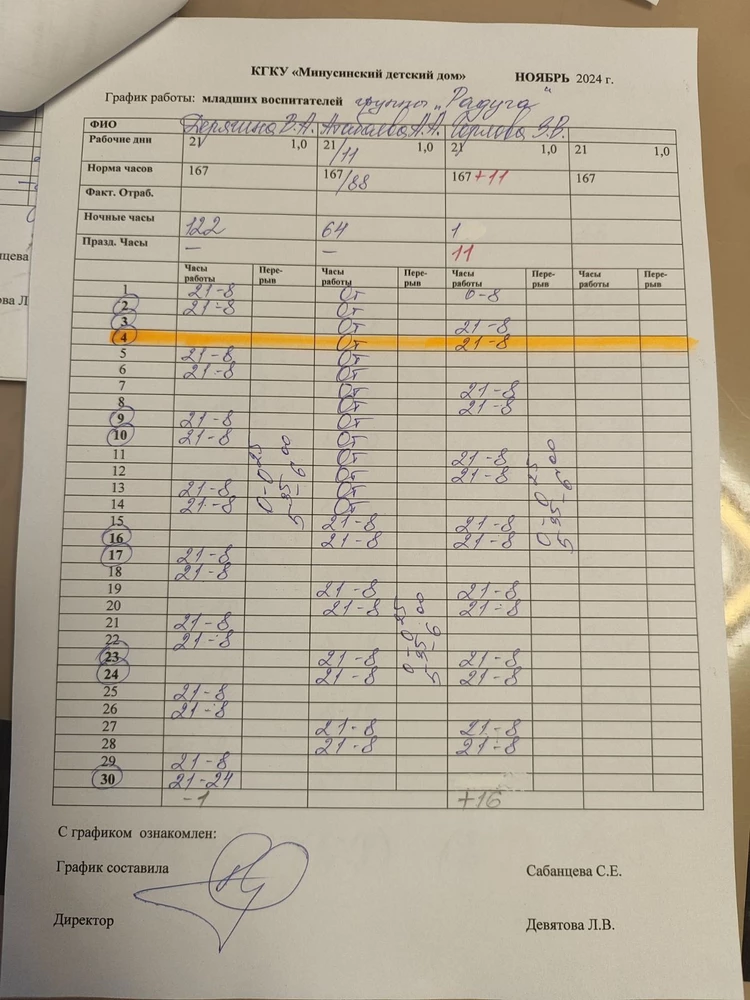 КГКУ «Минусинский детский дом» НОЯБРЬ 2024 г.
График работы: младших воспитателей группы „Радуга"
ФИО В.А. А.А. З.В.
Рабочие дни 21/ 1,0 21/11 1,0 21/ 1,0 21 1,0
Норма часов 167 167/88 167 +11 167
Факт. Отраб.
Ночные часы 122 64 1
Празд. Часы – – 11
Часы работы Пере- рыв Часы работы Пере- рыв Часы работы Пере- рыв Часы работы Пере- рыв
1 21-8 От 0-8
2 21-8 От
3 От 21-8
4 От 21-8
5 21-8 От
6 21-8 От
7 От 21-8
8 От 21-8
9 21-8 От
10 21-8 От
11 От 21-8
12 От 21-8
13 21-8 От
14 21-8 От
15 21-8 21-8
16 21-8 21-8
17 21-8
18 21-8
19 21-8 21-8
20 21-8 21-8
21 21-8
22 21-8
23 21-8 21-8
24 21-8 21-8
25 21-8
26 21-8
27 21-8 21-8
28 21-8 21-8
29 21-8
30 21-24
-1 +16
0-0 25
5 35-6 00
0-0 25
5 35-6 00
0-0 25
5 35-6 00
С графиком ознакомлен:
График составила Сабанцева С.Е.
Директор Девятова Л.В.